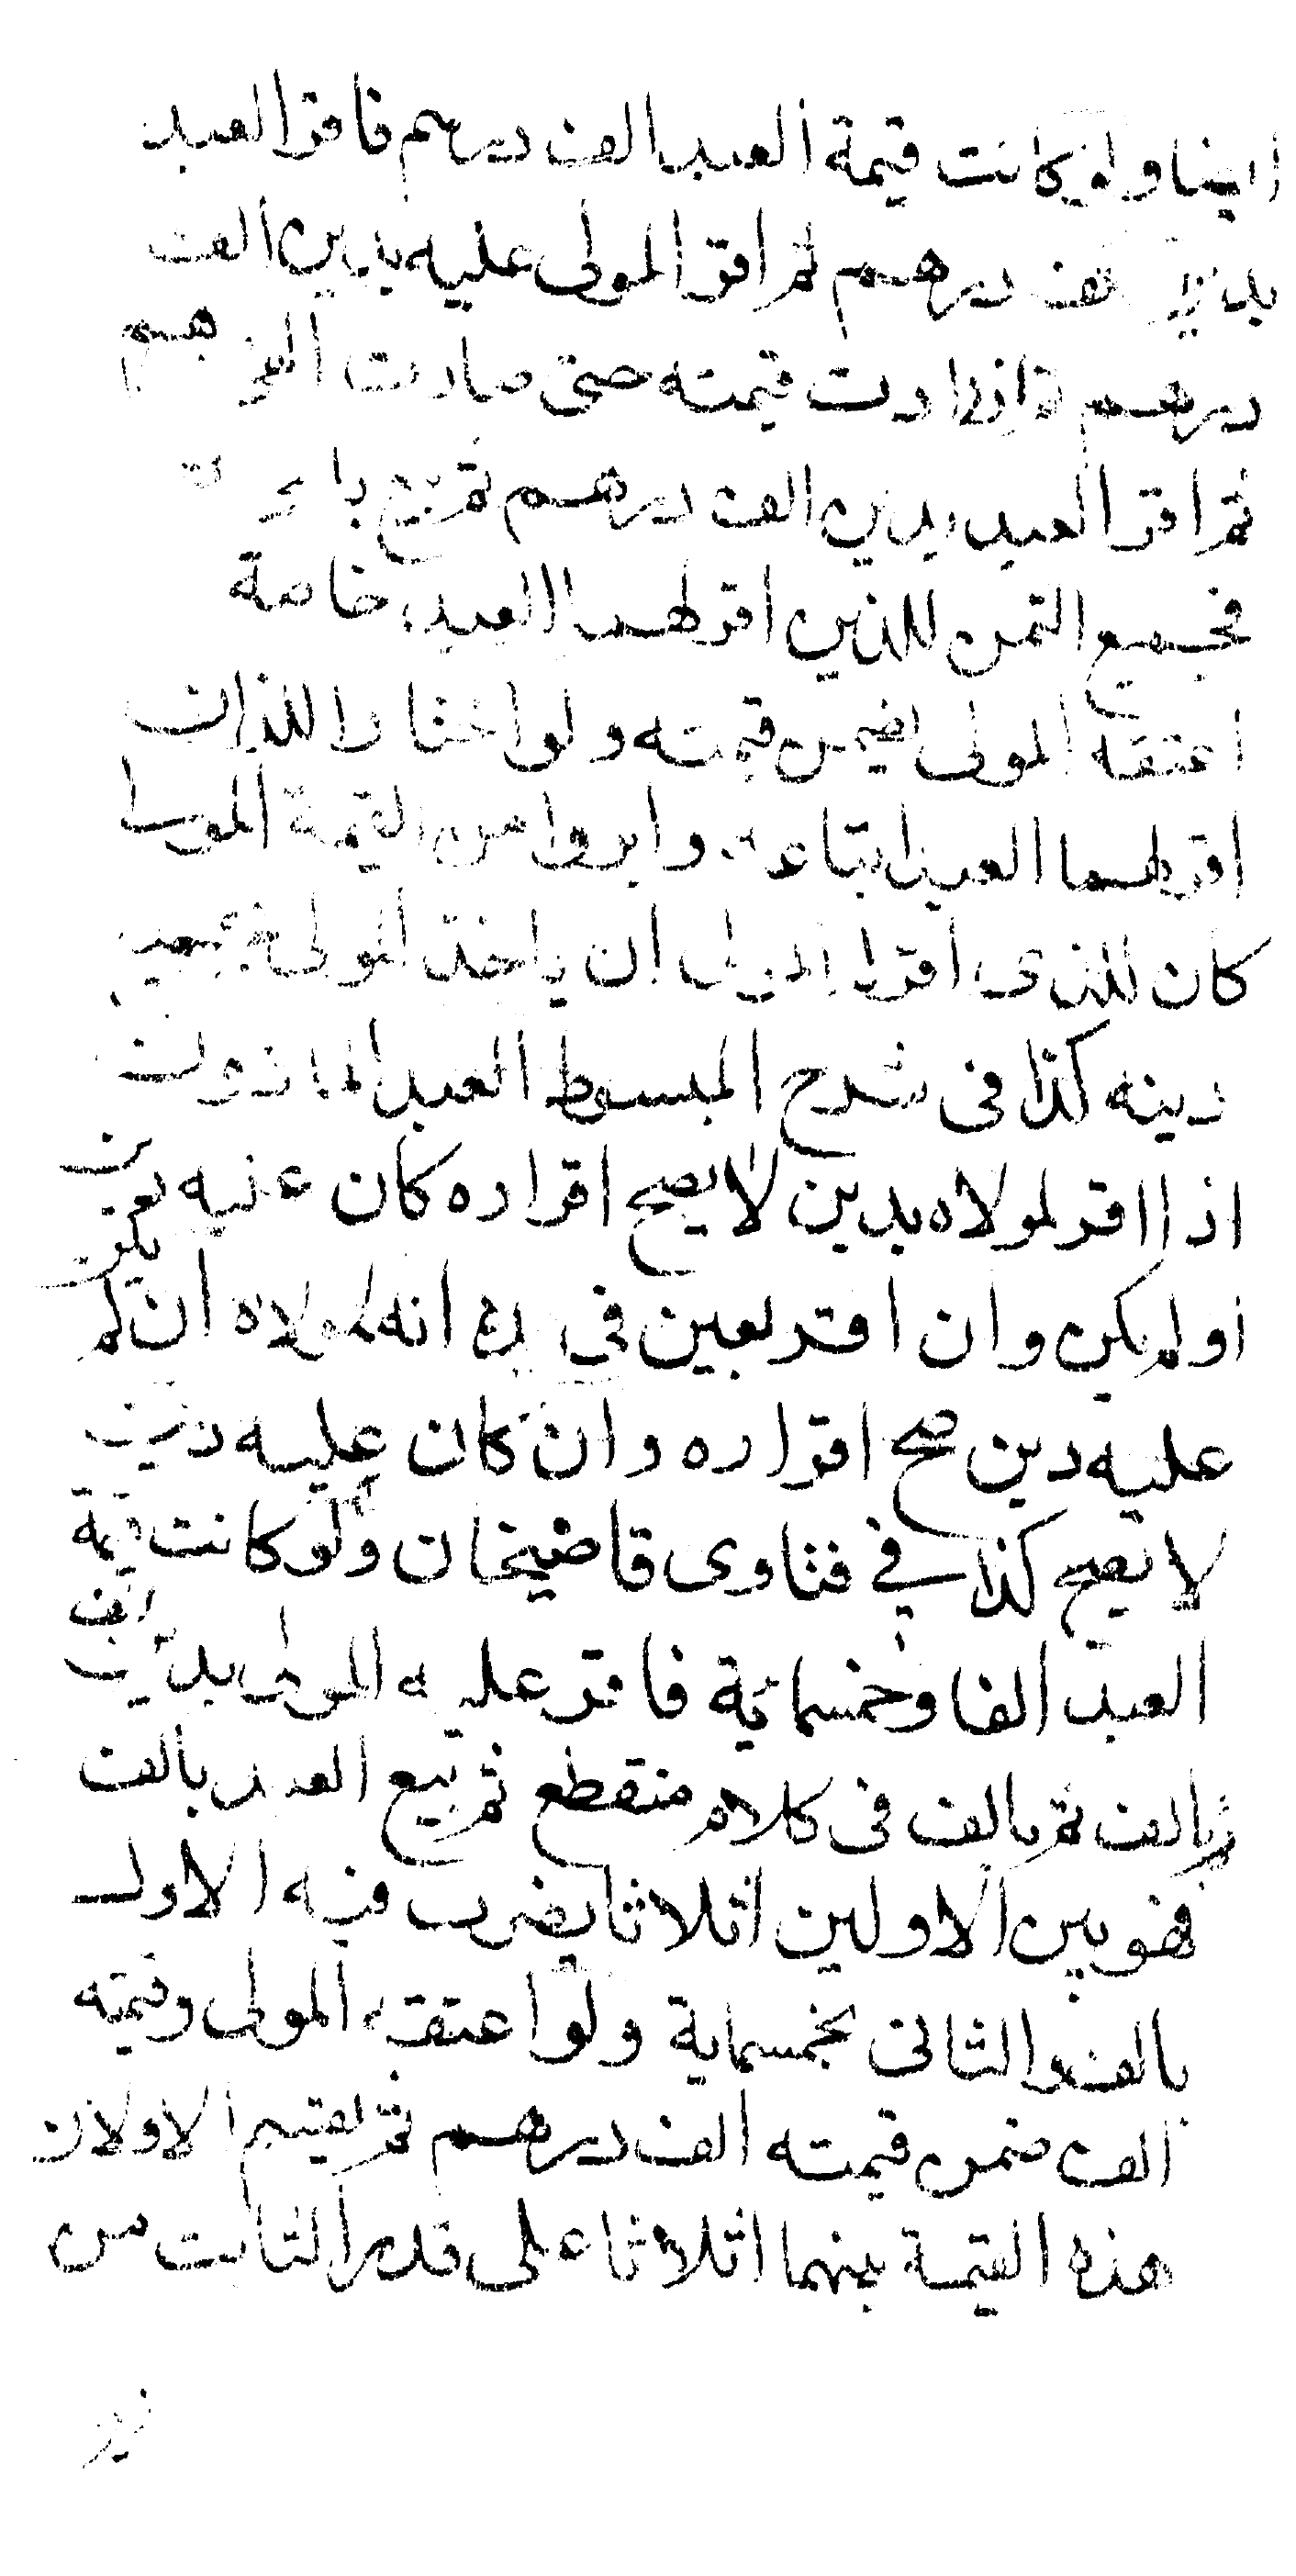 ايضا ولو كانت قيمة العبد الف درهم فاقر العبد
بدين الف درهم ثم اقر المولى عليه بدين الف
درهم ثم ازدادت قيمته حتى صارت الفى درهم
ثم اقر العبد بدين الف درهم ثم بيع بالفى
فجميع الثمن للذين اقر لهما العبد خاصة
اعتقه المولى يضمن قيمته ولو اختار اللذان
اقر لهما العبد اتباعه وابروا من القيمة المولى
كان للذى اقر له المولى ان ياخذ المولى بجميع
دينه كذا فى شرح المبسوط العبد الماذون
اذا اقر لمولاه بدين لا يصح اقراره كان عليه دين
او لم يكن وان اقر بعين فى يده انه لمولاه ان لم يكن
عليه دين صح اقراره وان كان عليه دين
لا يصح كذا في فتاوى قاضيخان ولو كانت قيمة
العبد الفا وخمسماية فاقر عليه المولى بدين الف
ثم بالف ثم بالف فى كلام منقطع ثم بيع العبد بالف
فهو بين الاولين اثلاثا يضرب فيه الاول
بالف والثانى بخمسماية ولو اعتقه المولى وقيمته
الف ضمن قيمته الف درهم ثم يقتسم الاولان
هذه القيمة بينهما اثلاثا على قدر الثابت من